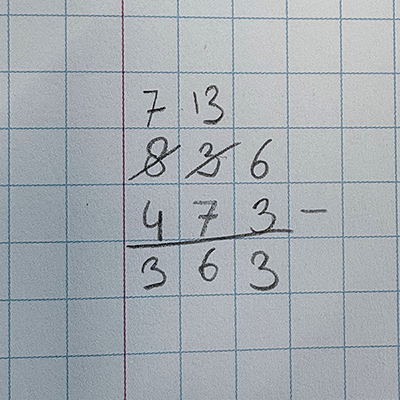 7 13
8 3 6
4 7 3 -
3 6 3